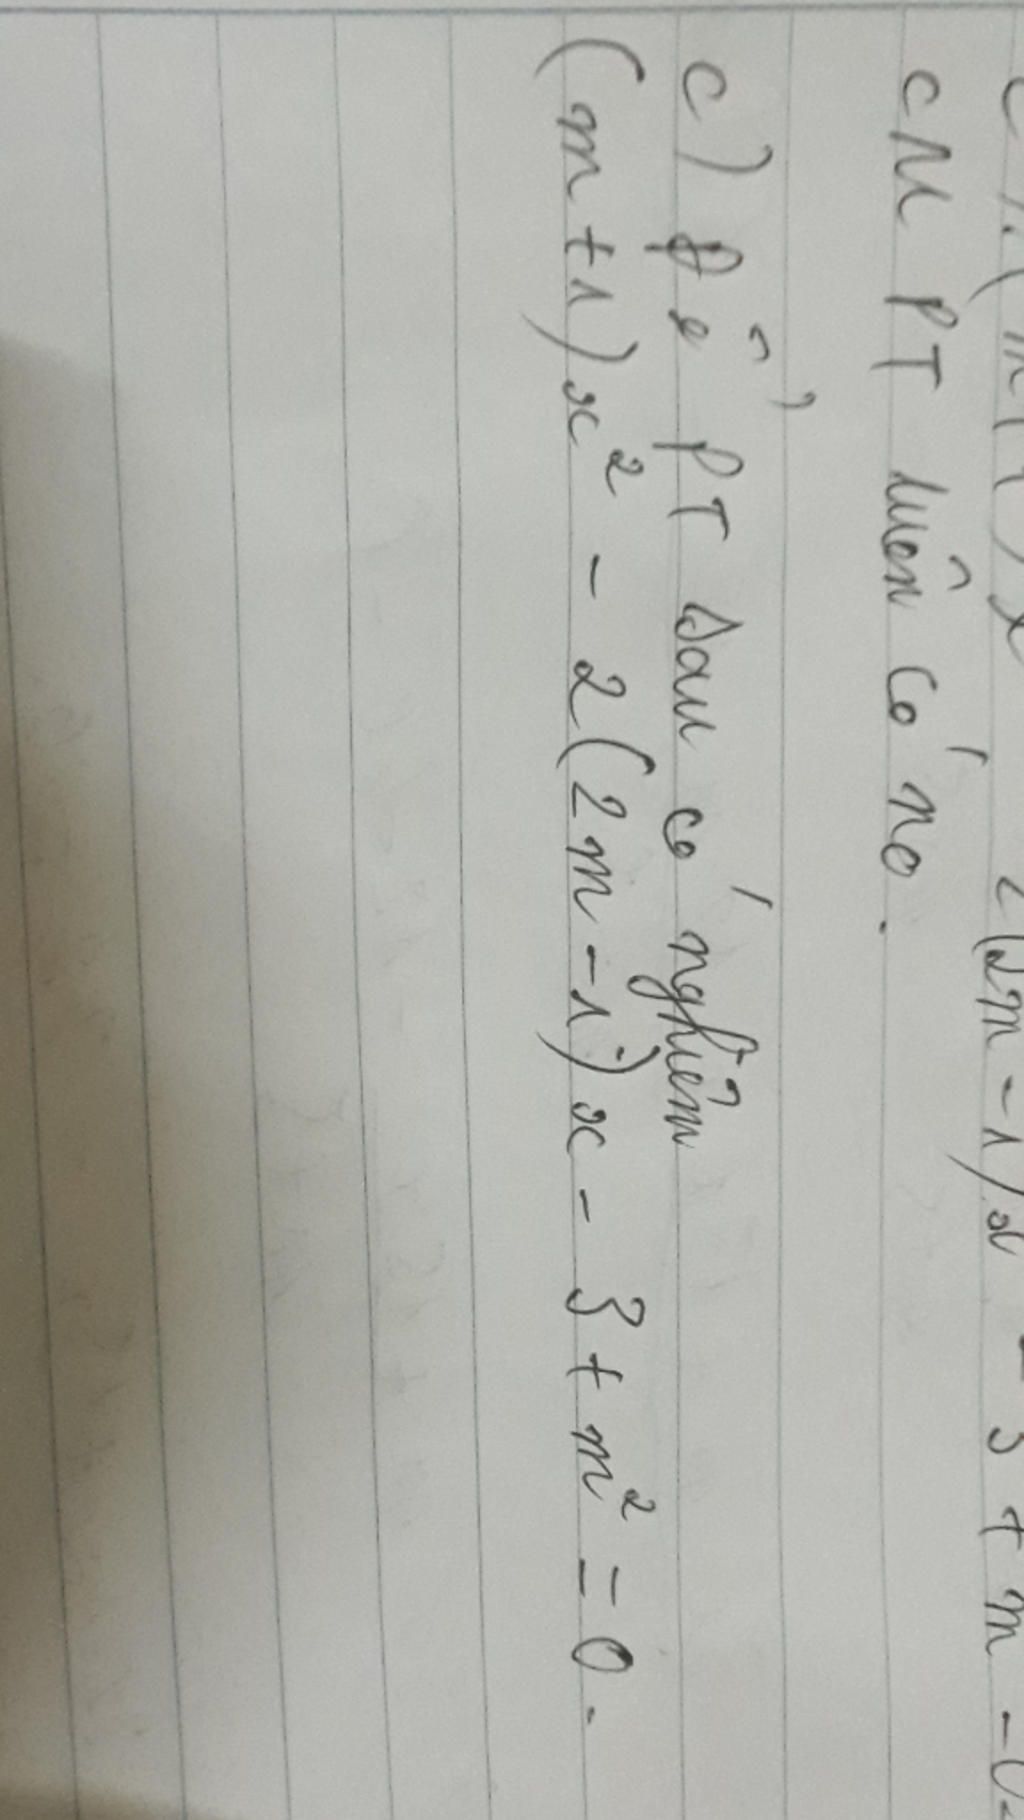 (m+1)x 2(2m-1)x - 3 + m
CM PT luôn có no.
c) Để PT sau có nghiệm
(m+1)x² - 2(2m-1)x - 3 + m² = 0.